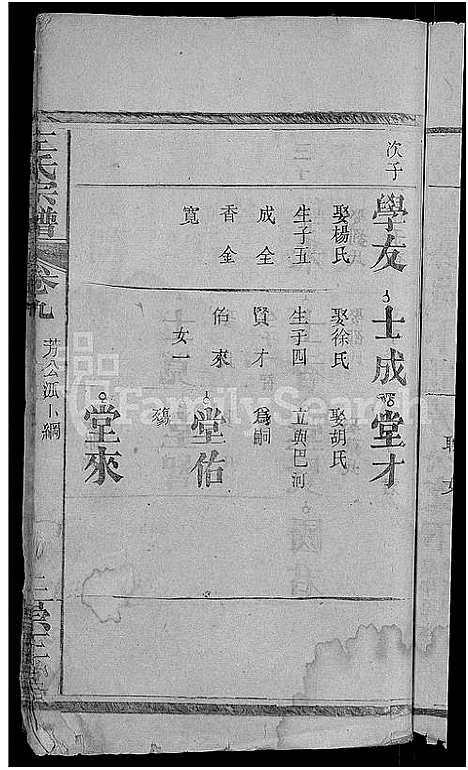 次子
學友 士成 堂才
娶楊氏 娶徐氏 娶胡氏
生子五 生子四 立興巴河
成全 賢才 爲嗣
香金 佑來 堂佑
寬 女一
堂來
王氏宗譜 卷九 芳公派卜綱
FamilySearch